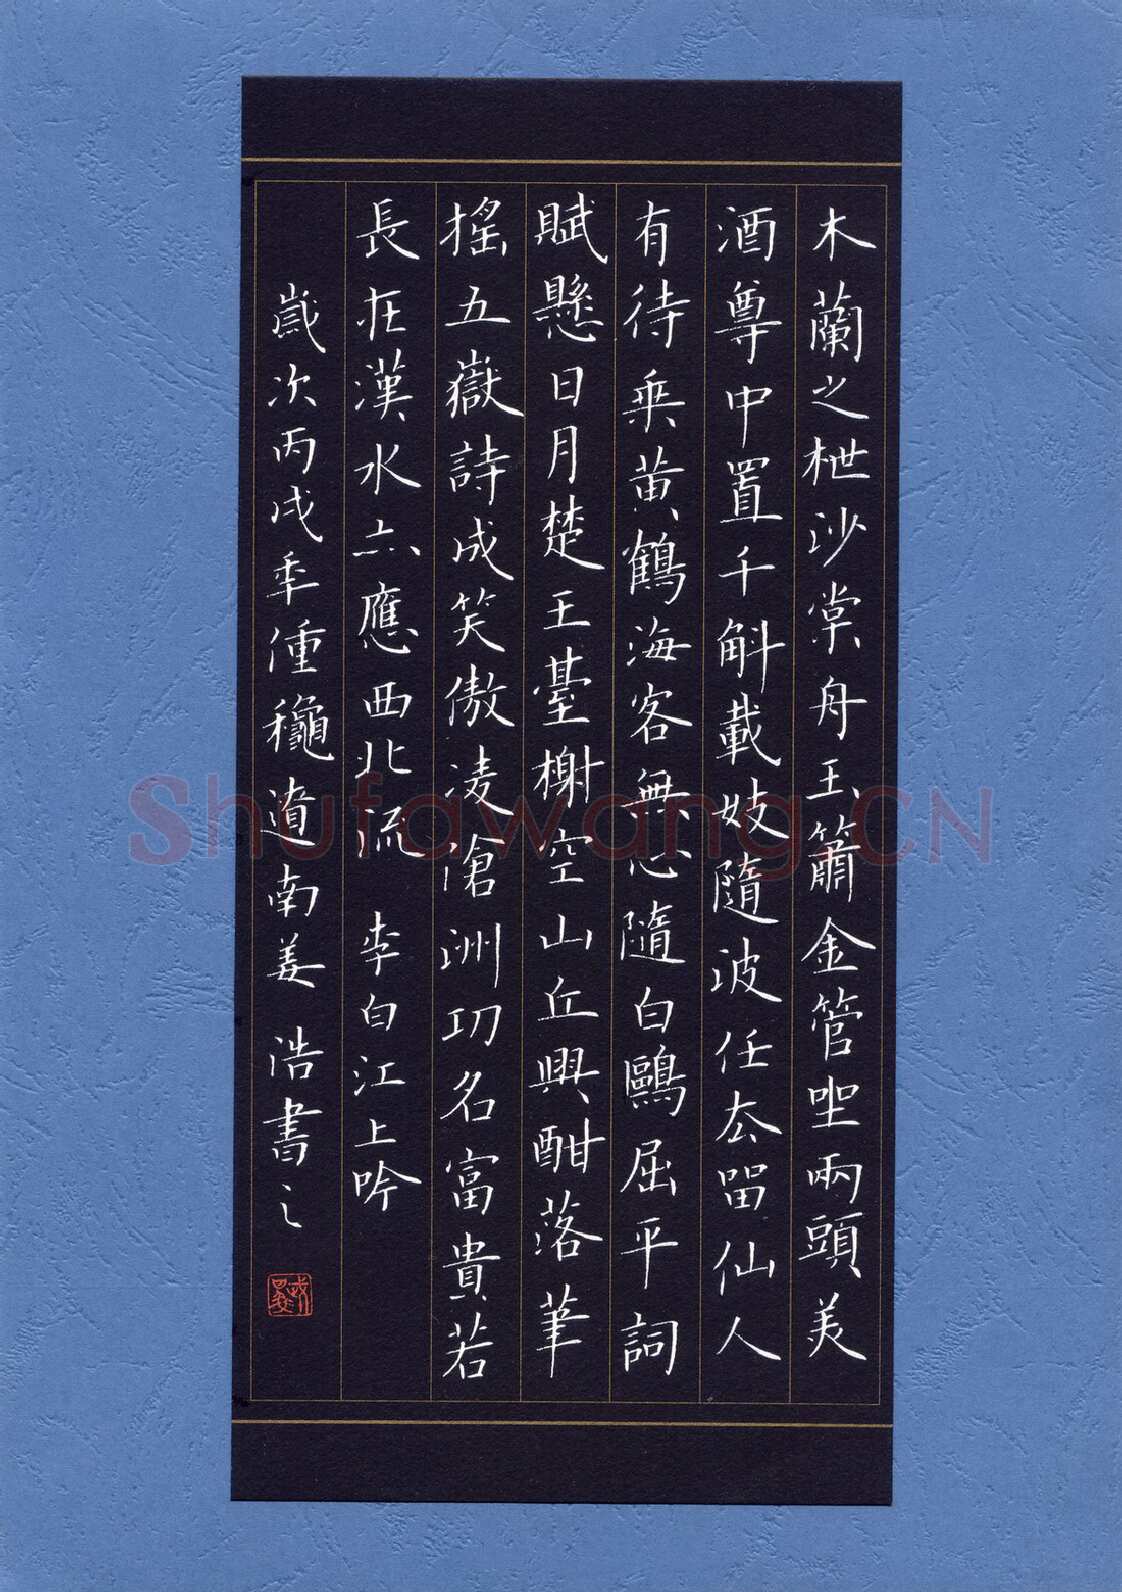 木蘭之枻沙棠舟玉簫金管坐兩頭美
酒尊中置千斛載妓隨波任去留仙人
有待乘黃鶴海客無心隨白鷗屈平詞
賦懸日月楚王臺榭空山丘興酣落筆
搖五嶽詩成笑傲凌滄洲功名富貴若
長在漢水亦應西北流 李白江上吟
歲次丙戌季僮龝道南姜浩書之
Shufawang.CN